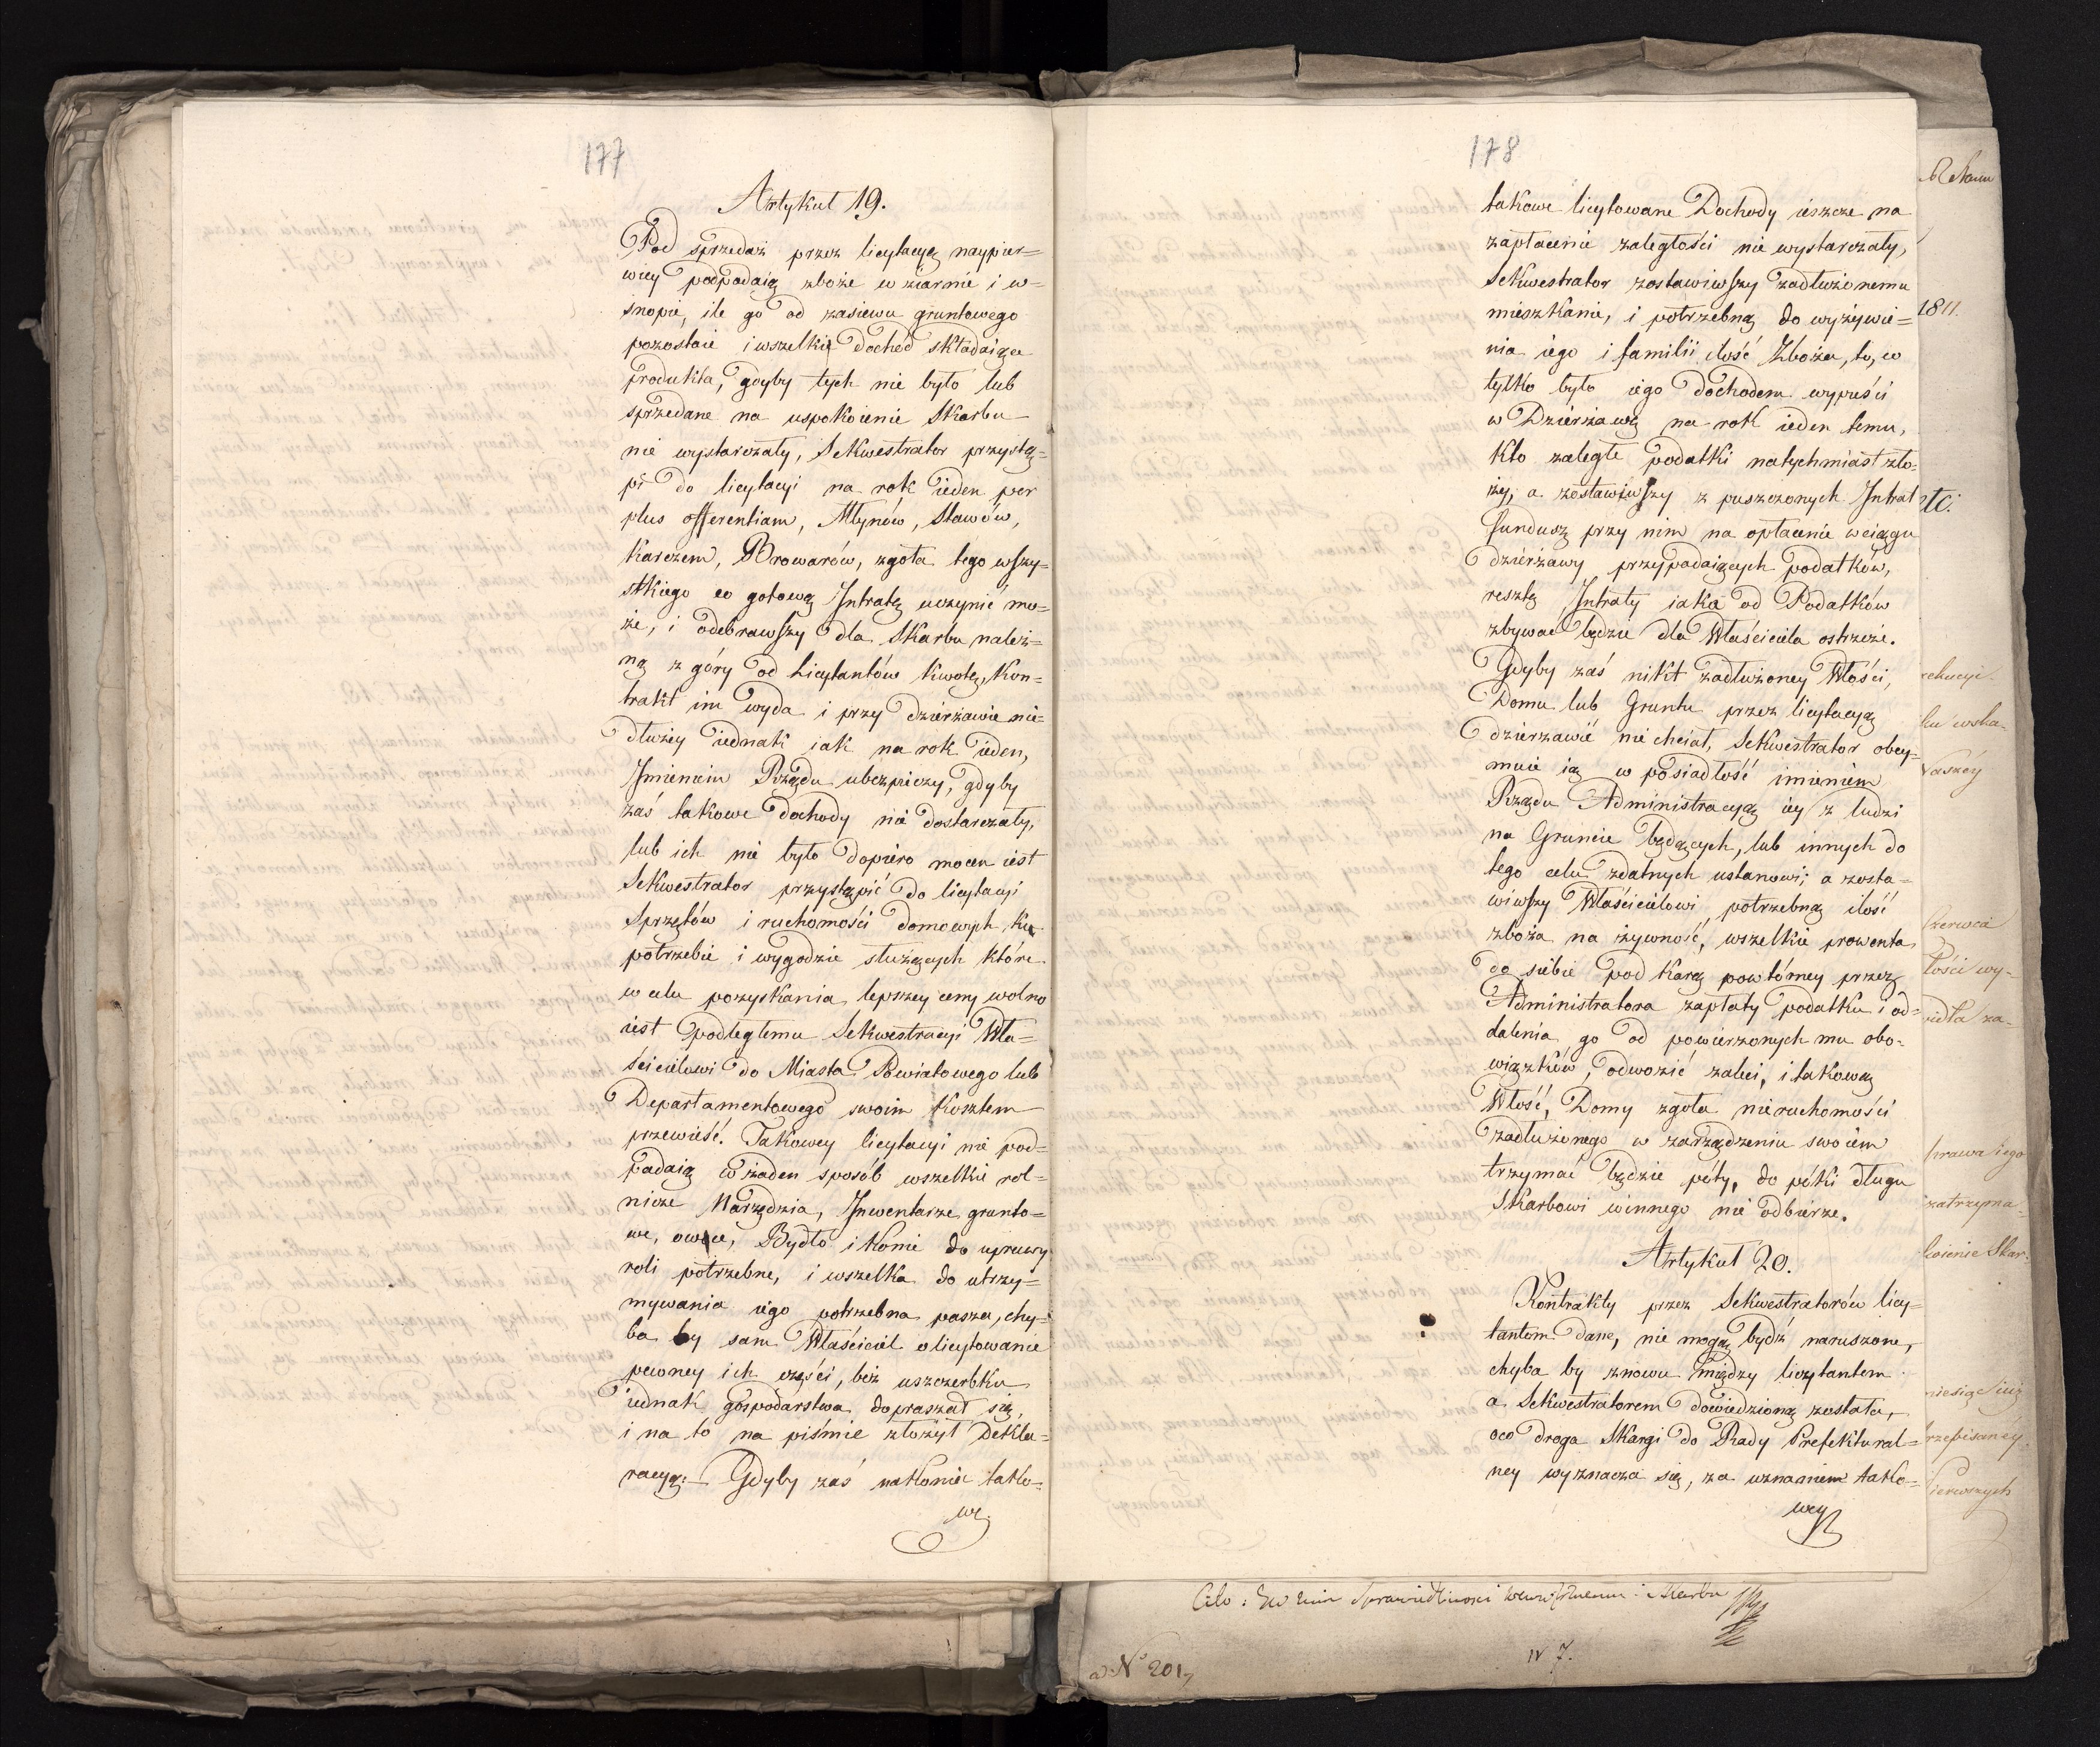 177
Artykuł 19.
Pod sprzedaż przez licytacyą naypier=
wiey podpadaią zboże w ziarnie i w=
snopie, ile go od zasiewu gruntowego
pozostaie i wszelkie dochod składaiące
produkta, gdyby tych nie było lub
sprzedane na uspokoienie Skarbu
nie wystarczały, Sekwestrator przystą=
pi do licytacyi na rok ieden per
plus offerentiam, Młynów, Stawów,
Karczem, Browarów, zgoła tego wszy=
stkiego co gotową Intratę uczynić mo=
że, i odebrawszy dla Skarbu należ=
ną z góry od Licytantów kwotę, Kon=
trakt im wyda i przy dzierżawie nie=
dłużey iednak iak na rok ieden,
Imieniem Rządu ubezpieczy, gdyby
zaś takowe dochody nie dostarczały,
lub ich nie było dopiero mocen iest
Sekwestrator przystąpić do licytacyi
Sprzętów i ruchomości domowych, ku
potrzebie i wygodzie służących które
w celu pozyskania lepszey ceny wolno
iest podległemu Sekwestracyi Wła=
ścicielowi do Miasta Powiatowego lub
Departamentowego swoim kosztem
przewieść. Takowey licytacyi nie pod=
padaią w żaden sposób wszelkie rol=
nicze Narzędzia, Inwentarze grunto=
we, owce, Bydło i konie do uprawy
roli potrzebne, i wszelka do utrzy=
mywania iego potrzebna pasza, chy=
ba by sam Właściciel o licytowanie
pewney ich części, bez uszczerbku
iednak gospodarstwa dopraszał się,
i na to na piśmie złożył Dekla=
racyą. Gdyby zaś nakoniec tako=
we
178
takowe licytowane Dochody ieszcze na
zapłacenie zaległości nie wystarczały,
Sekwestrator zostawiwszy zadłużonemu
mieszkanie, i potrzebną do wyżywie=
nia iego i familii ilość Zboża, to, co
tylko było iego dochodem wypuści
w Dzierżawę na rok ieden temu,
kto zaległe podatki natychmiast zło=
ży, a zostawiwszy z puszczonych Intrat
fundusz przy nim na opłacenie w ciągu
dzierżawy przypadaiących podatków,
resztę Intraty iaka od Podatków
zbywać będzie dla Właściciela ostrzeże.
Gdyby zaś nikt zadłużoney Włości,
Domu lub Gruntu przez licytacyą
dzierżawić nie chciał, Sekwestrator obey=
muie ią w posiadłość imieniem
Rządu Administracyą iey z ludzi
na Gruncie będących, lub innych do
tego celu zdatnych ustanowi; a zosta=
wiwszy Właścicielowi potrzebną ilość
zboża na żywność, wszelkie prowenta
do siebie pod karą powtórney przez
Administratora zapłaty podatku i od=
dalenia go od powierzonych mu obo=
wiązków, odwozić zaleci, i takową
Włość, Domy zgoła nieruchomości
zadłużonego w zarządzeniu swoiem
trzymać będzie póty, do póki długu
Skarbowi winnego nie odbierze.
Artykuł 20.
Kontrakty przez Sekwestratorów licy=
tantom dane, nie mogą bydź naruszone,
chyba by znowu między licytantem
a Sekwestratorem dowiedzioną została,
oco droga Skargi do Rady Prefektural=
ney wyznacza się, za uznaniem tako=
wey
1811.
tć.
ku wska=
Waszéy
Czerwca
łości wy=
prawa iego
zatrzyma=
koienie Skar=
miesiąc iuż
rzepisaney
Pierwszych
N° 201,
N 7.